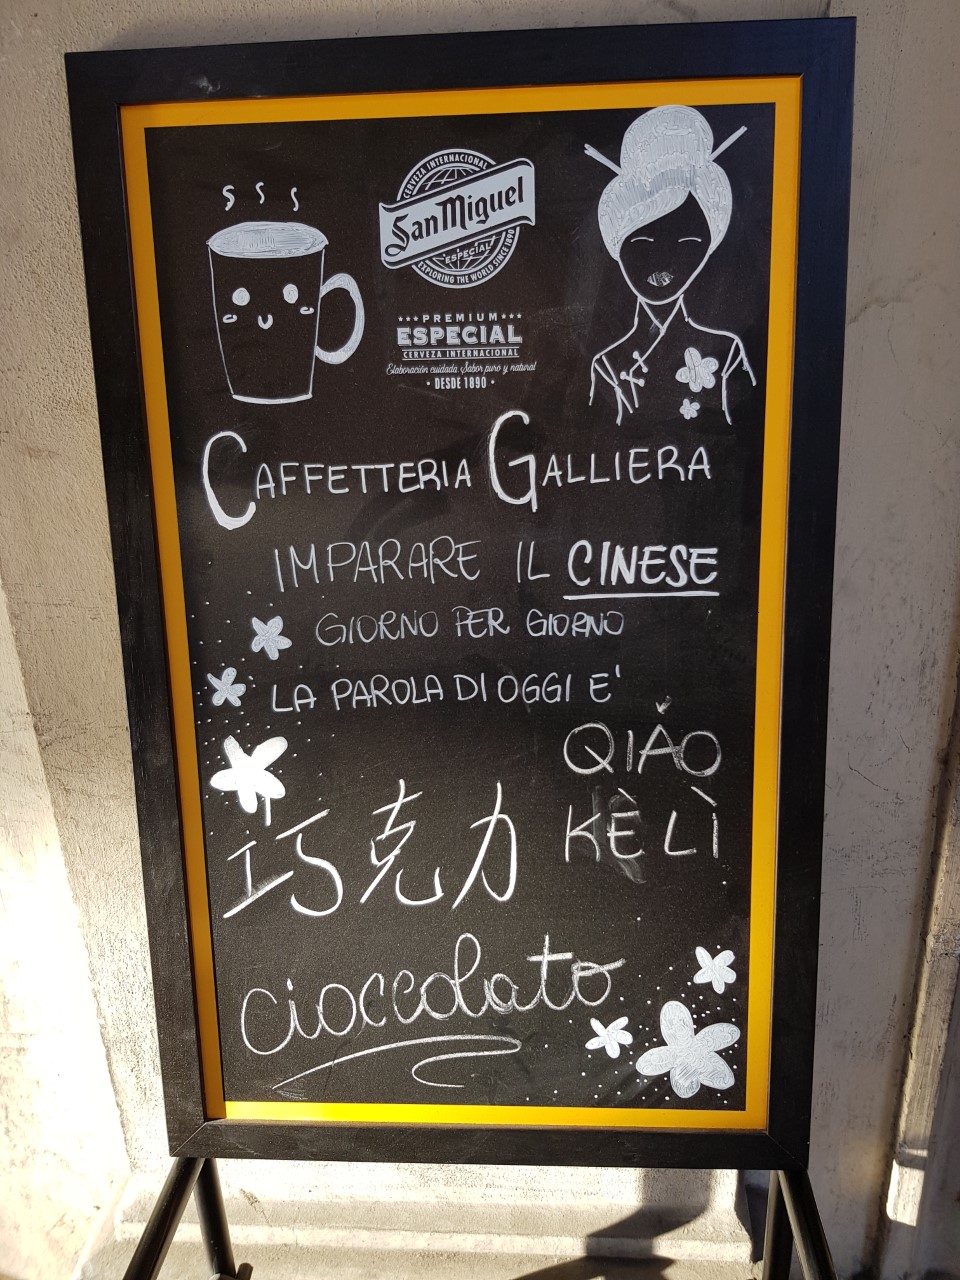 CERVEZA INTERNACIONAL
San Miguel
ESPECIAL
EXPLORING THE WORLD SINCE 1890
PREMIUM
ESPECIAL
CERVEZA INTERNACIONAL
Elaboración cuidada. Sabor puro y natural
· DESDE 1890 ·
CAFFETTERIA GALLIERA
IMPARARE IL CINESE
GIORNO PER GIORNO
LA PAROLA DI OGGI E'
QIǍO
KÈ LÌ
巧克力
cioccolato